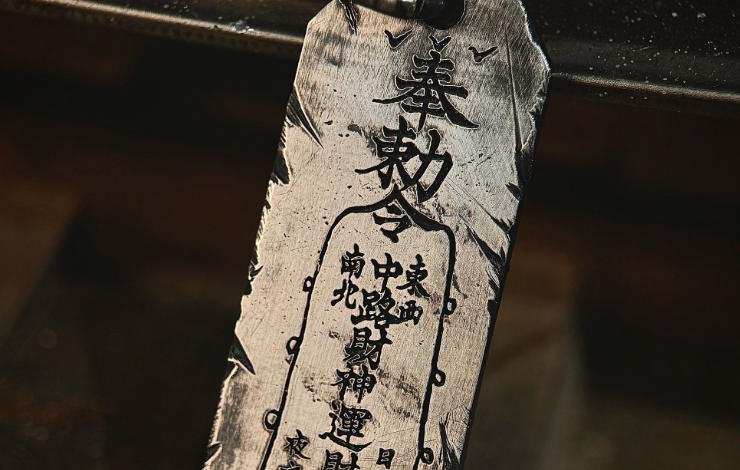 奉
勅
令
東西
中路財神運財
南北
日
夜